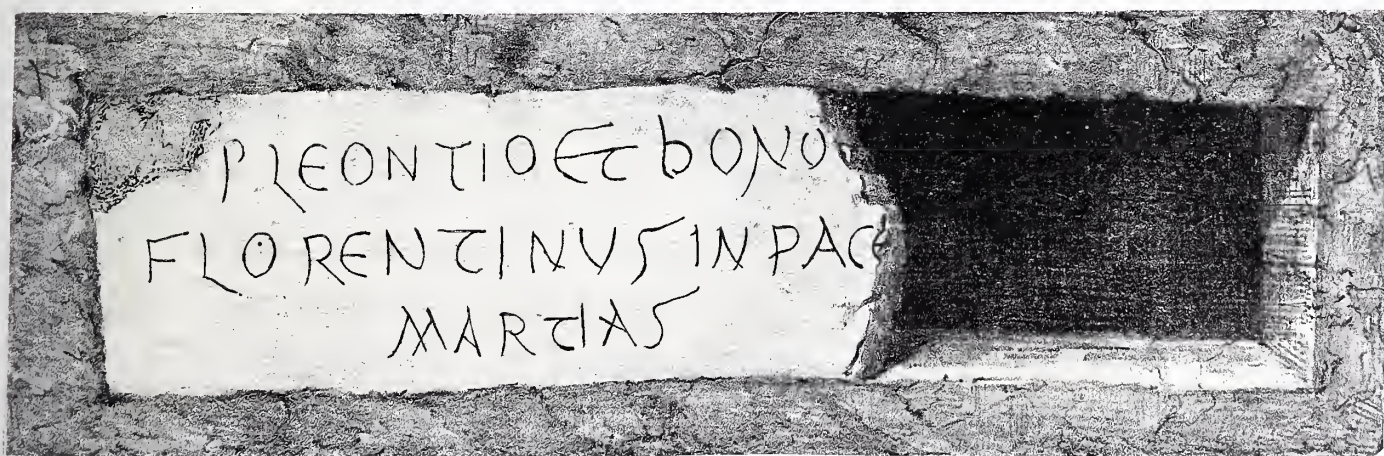 P LEONTIO ET bONO
FLORENTINUS IN PACE
MARTIAS